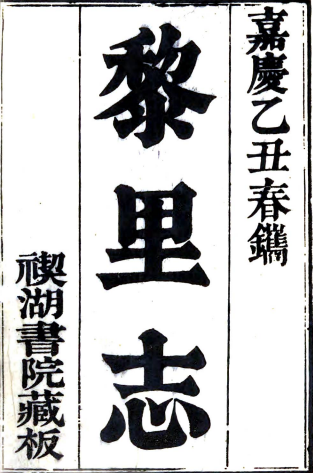 嘉慶乙丑春鐫
黎里志
禊湖書院藏板